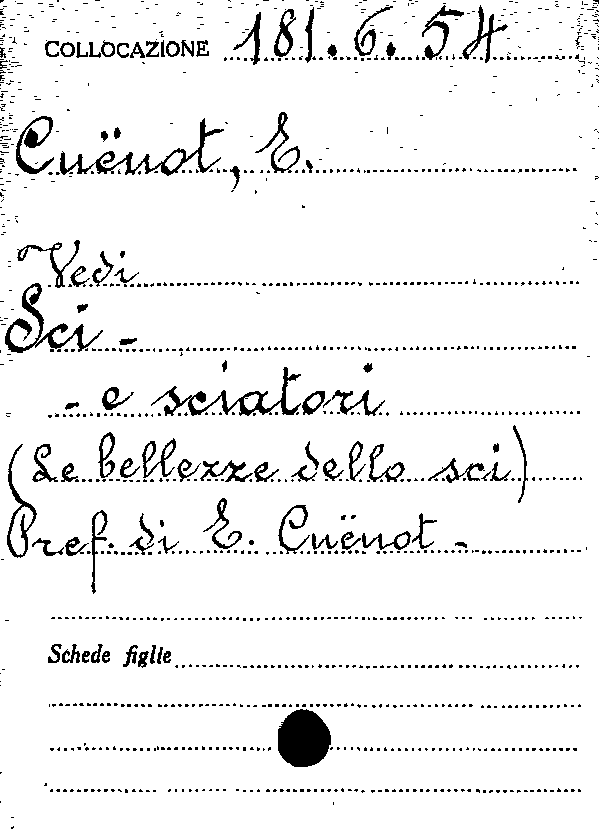 COLLOCAZIONE 181.6.54
Cuënot, E.
Vedi
Sci -
- e sciatori
(Le bellezze dello sci)
Pref. di E. Cuënot -
Schede figlie